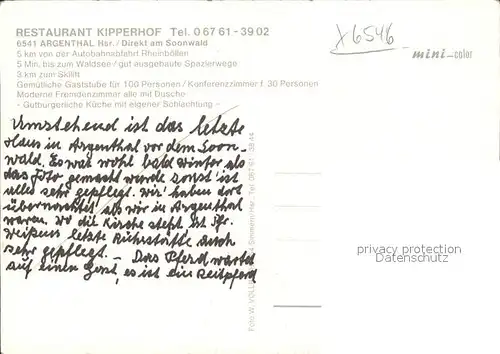 RESTAURANT KIPPERHOF Tel. 0 67 61 - 39 02
6541 ARGENTHAL Hsr. / Direkt am Soonwald
5 km von der Autobahnabfahrt Rheinböllen
5 Min. bis zum Waldsee / gut ausgebaute Spazierwege
3 km zum Skilift
Gemütliche Gaststube für 100 Personen / Konferenzzimmer f. 30 Personen
Moderne Fremdenzimmer alle mit Dusche
- Gutbürgerliche Küche mit eigener Schlachtung -
x6546
mini-color
Umstehend ist das letzte
Haus in Argenthal vor dem Soon-
wald. Es war wohl bald Winter als
das Foto gemacht wurde sonst ist
alles sehr gepflegt. Wir haben dort
übernachtet als wir in Argenthal
waren. Wo die Kirche steht ist Fr.
letzte Ruhestätte auch
sehr gepflegt. - Das Pferd wartet
auf einen Gast, es ist ein Reitpferd
Foto W. Simmern/Hsr. Tel. 067 61
privacy protection
privacy protection